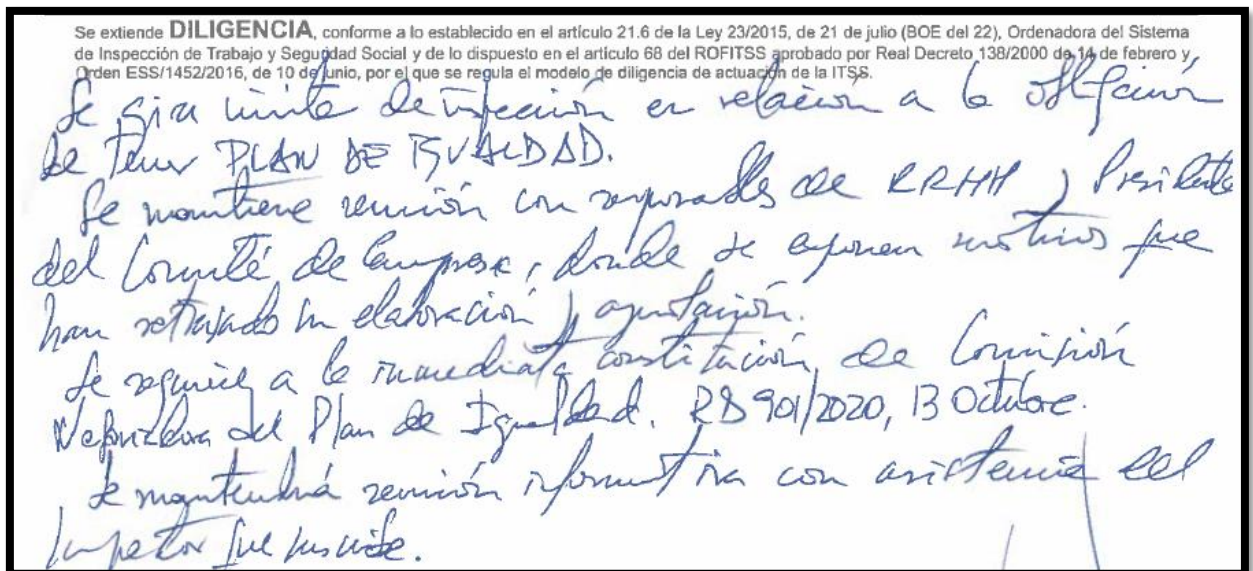 Se extiende DILIGENCIA, conforme a lo establecido en el artículo 21.6 de la Ley 23/2015, de 21 de julio (BOE del 22), Ordenadora del Sistema
de Inspección de Trabajo y Seguridad Social y de lo dispuesto en el artículo 68 del ROFITSS aprobado por Real Decreto 138/2000 de 14 de febrero y
Orden ESS/1452/2016, de 10 de junio, por el que se regula el modelo de diligencia de actuación de la ITSS.
Se gira visita de inspección en relación a la obligación
de tener PLAN DE IGUALDAD.
Se mantiene reunión con responsables de RRHH y Presidente
del Comité de Empresa, donde se exponen motivos que
han retrasado su elaboración y aprobación.
Se requiere a la inmediata constitución de Comisión
Negociadora del Plan de Igualdad. RD 901/2020, 13 Octubre.
Se mantendrá reunión informativa con asistencia del
Inspector que suscribe.